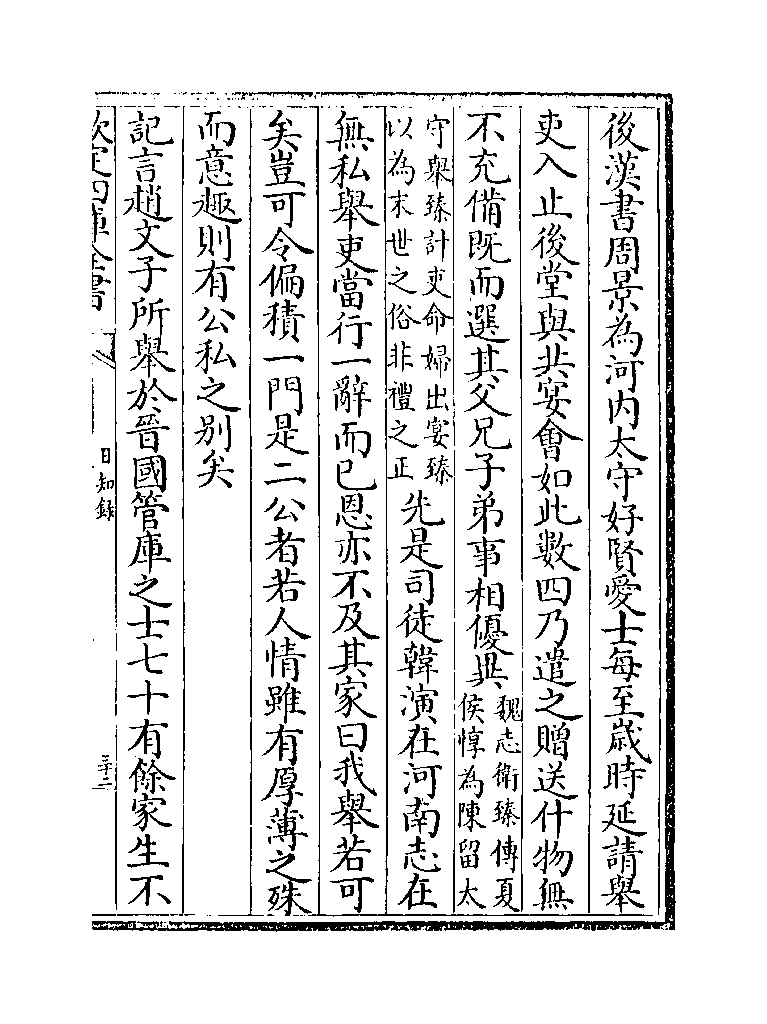 後漢書周景為河内太守好賢愛士每至歲時延請舉
吏入止後堂與共宴會如此數四乃遣之贈送什物無
不充備既而選其父兄子弟事相優異魏志衛臻傳夏侯惇為陳留太
守舉臻計吏命婦出宴臻以為末世之俗非禮之正先是司徒韓演在河南志在
無私舉吏當行一辭而已恩亦不及其家曰我舉若可
矣豈可令偏積一門是二公者若人情雖有厚薄之殊
而意趣則有公私之别矣
記言趙文子所舉於晉國管庫之士七十有餘家生不
欽定四庫全書
日知錄
三十二